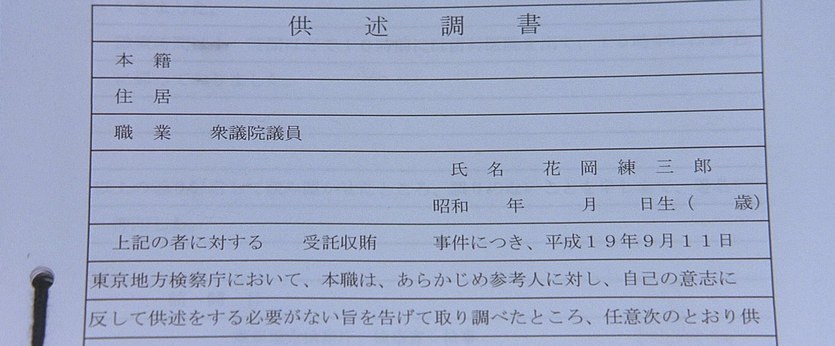 供述調書
本籍
住居
職業 衆議院議員
氏名 花岡練三郎
昭和 年 月 日生( 歳)
上記の者に対する 受託収賄 事件につき、平成19年9月11日
東京地方検察庁において、本職は、あらかじめ参考人に対し、自己の意志に
反して供述をする必要がない旨を告げて取り調べたところ、任意次のとおり供